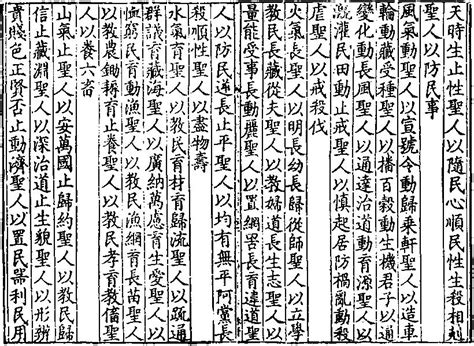 天時生止性聖人以隨民心順民性生殺相剋
聖人以防民事
風氣動聖人以宣號令動歸乘軒聖人以造車
輪動藏受種聖人以播百穀動生機君子以通
變化動長風聖人以通達治道動育源聖人以
溉灌民田動止戒聖人以慎起居防禍亂動殺
虐聖人以戒殺伐
火氣長聖人以明長幼長歸從師聖人以立學
教民長藏從夫聖人以教婦道長生志聖人以
量能受事長動麗聖人以置網罟長育違道聖
人以防民逆長止平聖人以均有無平阿黨長
殺順性聖人以盡物壽
水氣育聖人以教民育材育歸流聖人以疏通
群議育藏海聖人以廣納萬慮育生愛聖人以
恤窮民育動漁聖人以教民漁網育長苗聖人
以教農鋤耨育止養聖人以教民孝育聖
人以養六畜
山氣止聖人以安萬國止歸約聖人以教民歸
信止藏淵聖人以深治道止生貌聖人以形辨
貴賤色正賢否止動濟聖人以置民器利民用